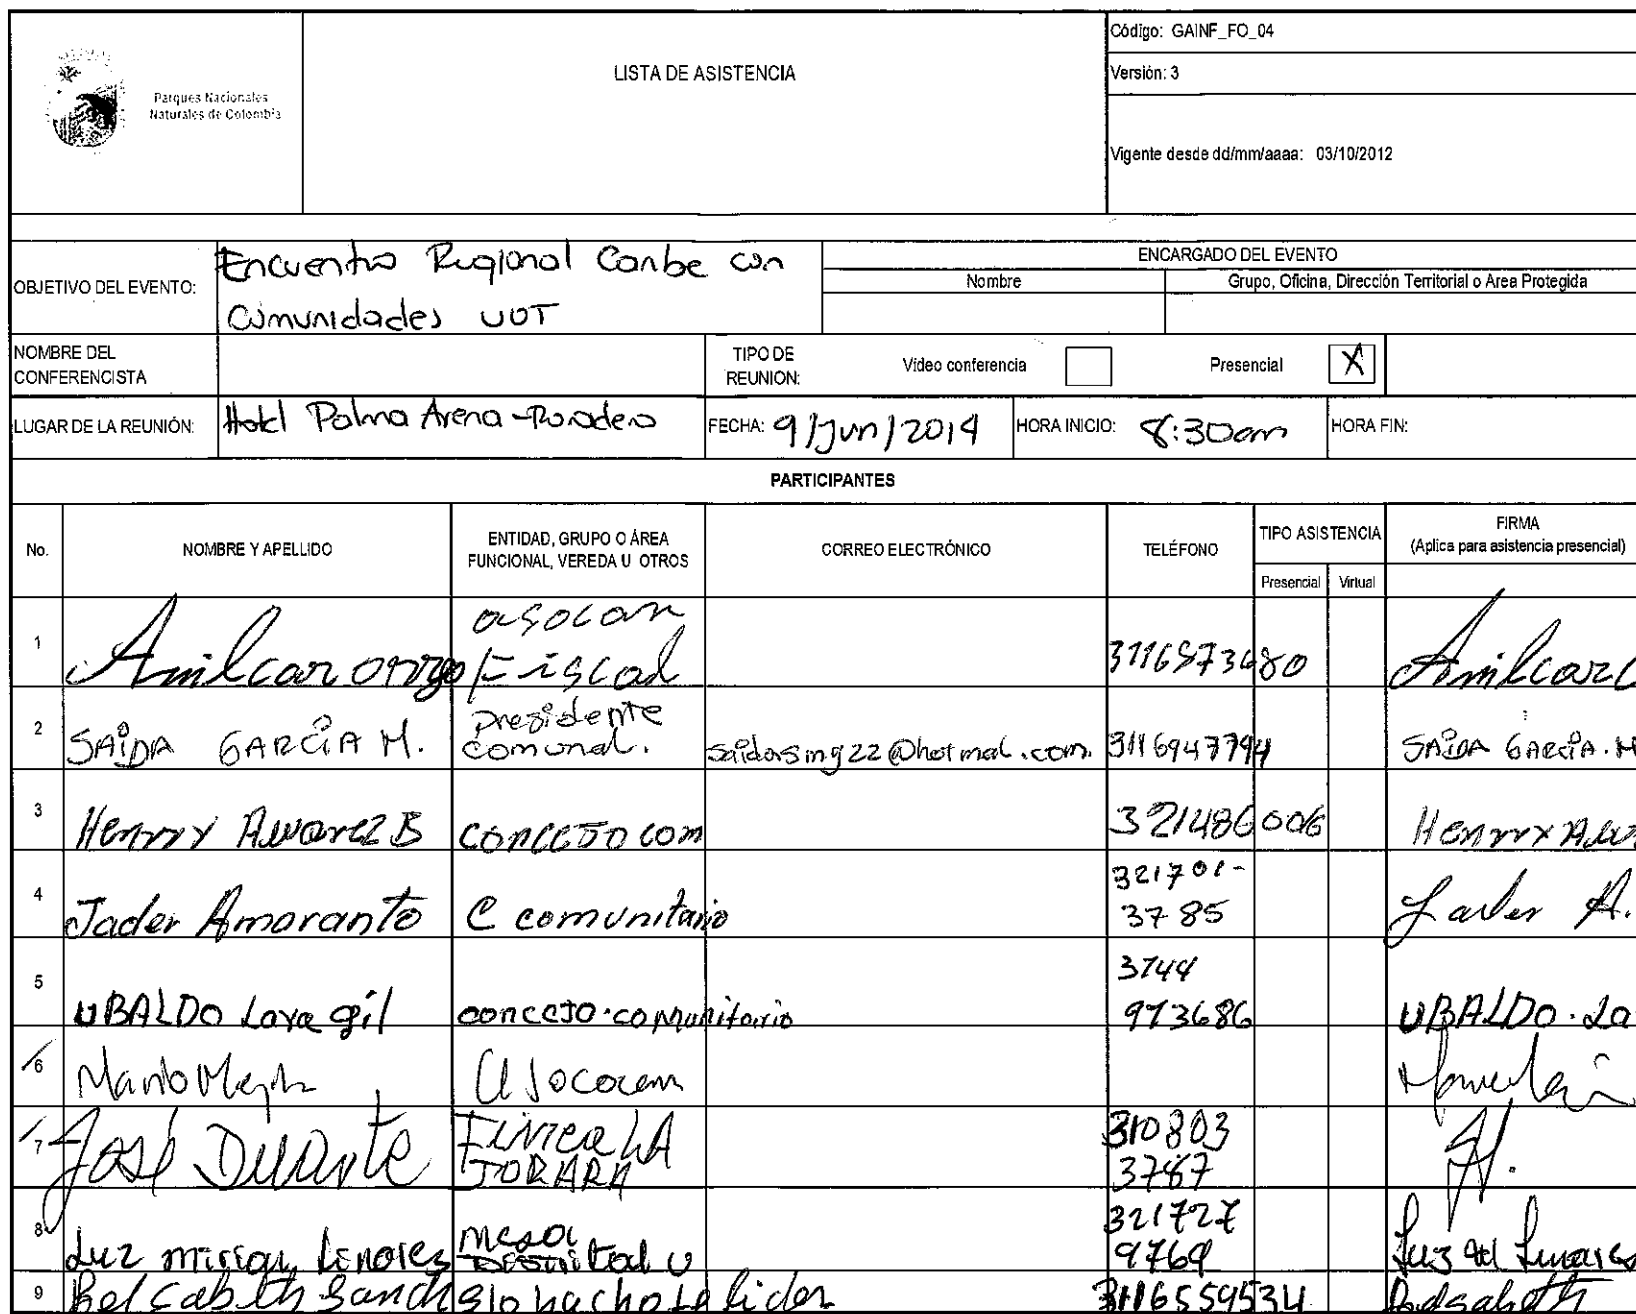 Parques Nacionales
Naturales de Colombia
LISTA DE ASISTENCIA
Código: GAINF_FO_04
Versión: 3
Vigente desde dd/mm/aaaa: 03/10/2012
OBJETIVO DEL EVENTO:
Encuentro Regional Caribe con
Comunidades UOT
ENCARGADO DEL EVENTO
Nombre
Grupo, Oficina, Dirección Territorial o Area Protegida
NOMBRE DEL
CONFERENCISTA
TIPO DE
REUNION:
Video conferencia
Presencial X
LUGAR DE LA REUNIÓN: Hotel Palma Arena - Rodadero
FECHA: 9/Jun/2014
HORA INICIO: 8:30am
HORA FIN:
PARTICIPANTES
No.
NOMBRE Y APELLIDO
ENTIDAD, GRUPO O ÁREA
FUNCIONAL, VEREDA U OTROS
CORREO ELECTRÓNICO
TELÉFONO
TIPO ASISTENCIA
Presencial Virtual
FIRMA
(Aplica para asistencia presencial)
1 Amilcar asocan
Fiscal
3116573680 Amilcar
2 SAIDA GARCIA M. presidente
comunal. saidasing22@hotmal.com. 3116947794 SAIDA GARCIA. M
3 Hennry Alvarez B conceJo com 321486006 Hennry
4 Jader Amaranto C comunitario 321701-
3785 Jader A.
5 UBALDO Lara gil conceJo.comunitario 3144
973686 UBALDO. La
6 Mario
7 José Duarte Finca LA
JORARA 310803
3767
8 Luz miriam Linares mesa
Distrital 321727
9769 Luz Linares
9 Belsabeth Sanch lider 3116559534 Belsabeth